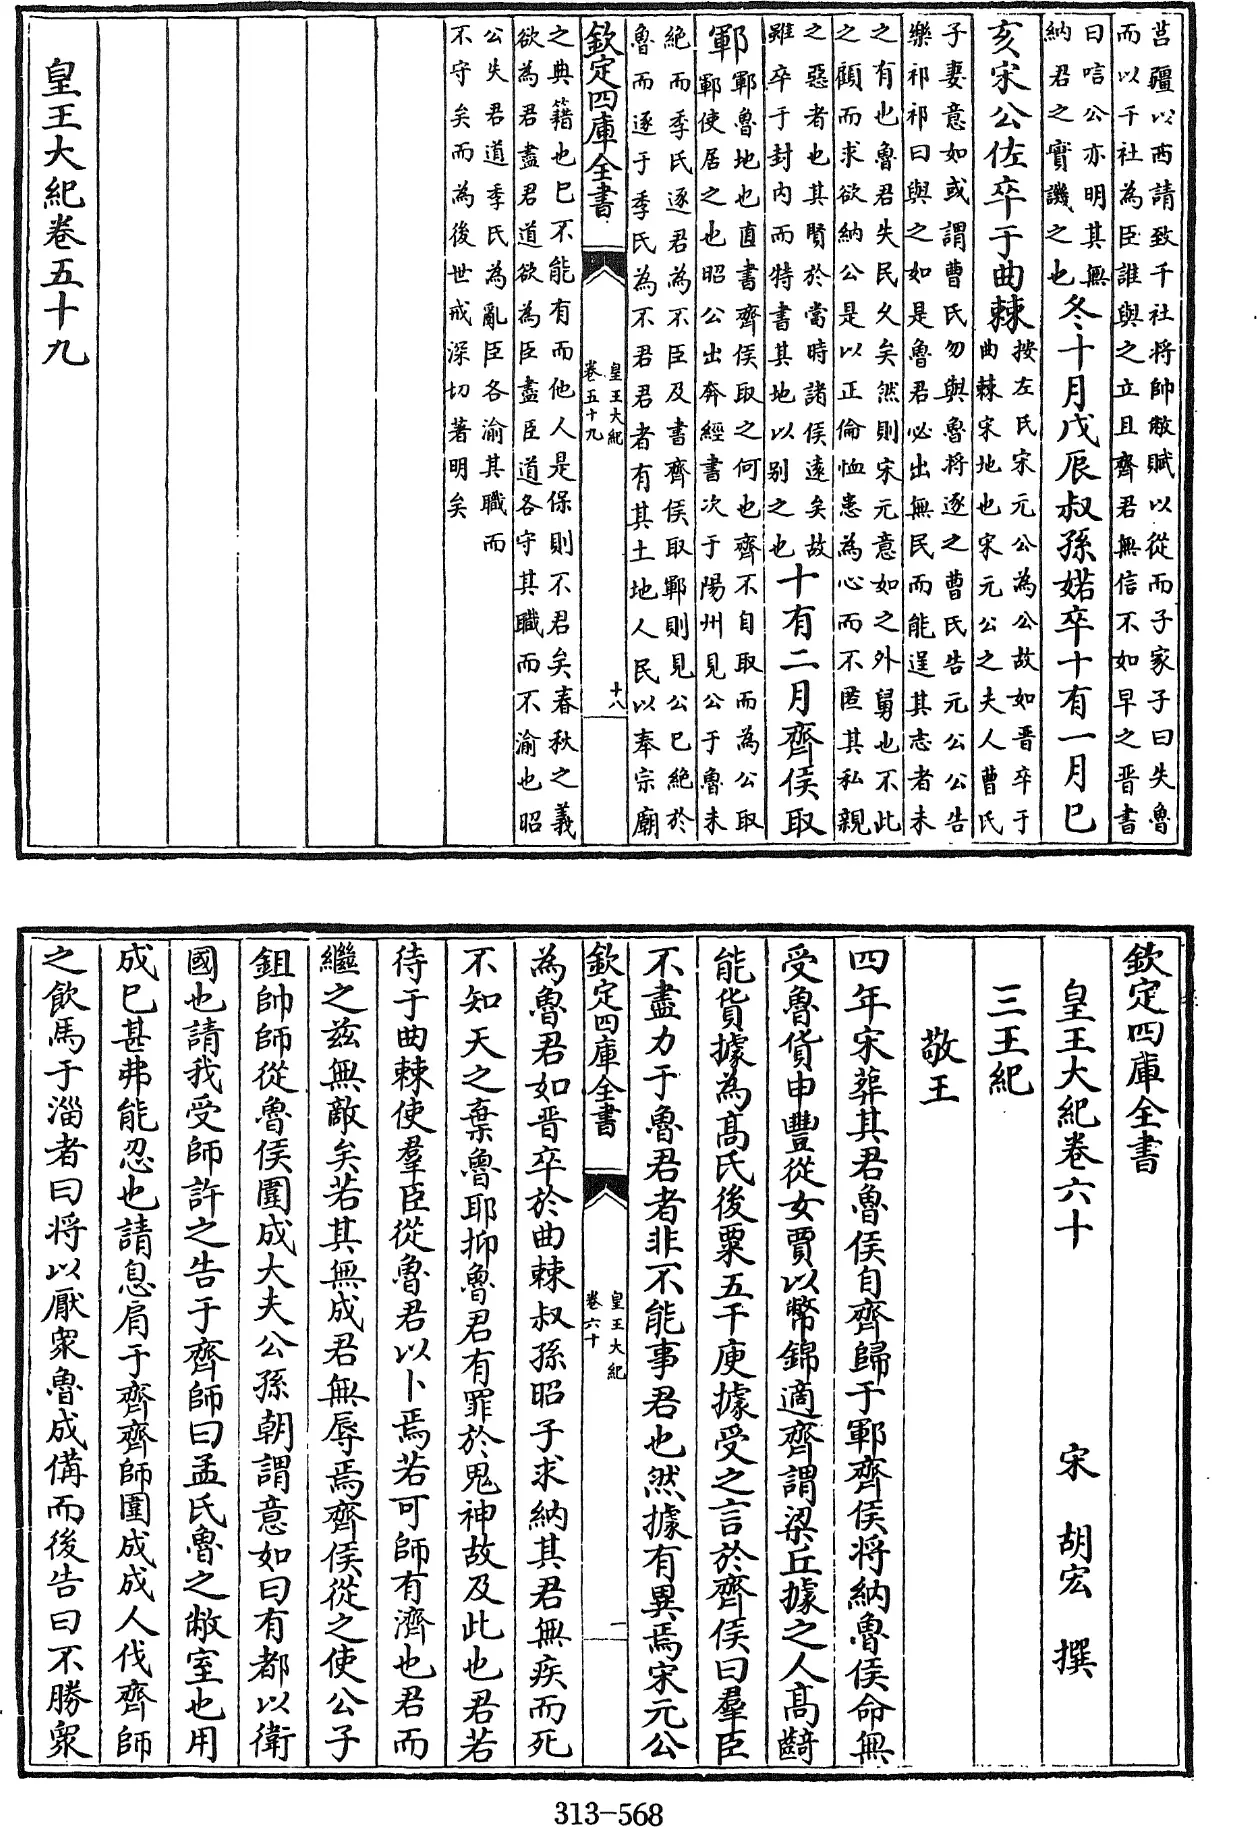 莒疆以西請致千社將帥敝賦以從而子家子曰失魯
而以千社為臣誰與之立且齊君無信不如早之晉書
曰唁公亦明其無
納君之實譏之也
冬十月戊辰叔孫婼卒十有一月巳
亥宋公佐卒于曲棘
按左氏宋元公為公故如晉卒于
曲棘宋地也宋元公之夫人曹氏
子妻意如或謂曹氏勿與魯將逐之曹氏告元公公告
樂祁祁曰與之如是魯君必出無民而能逞其志者未
之有也魯君失民久矣然則宋元意如之外舅也不此
之顧而求欲納公是以正倫恤患為心而不匿其私親
之惡者也其賢於當時諸侯遠矣故
雖卒于封内而特書其地以别之也
十有二月齊侯取
鄆
鄆魯地也直書齊侯取之何也齊不自取而為公取
鄆使居之也昭公出奔經書次于陽州見公于魯未
絶而季氏逐君為不臣及書齊侯取鄆則見公巳絶於
魯而逐于季氏為不君君者有其土地人民以奉宗廟
欽定四庫全書
皇王大紀
卷五十九
十八
之典籍也巳不能有而他人是保則不君矣春秋之義
欲為君盡君道欲為臣盡臣道各守其職而不渝也昭
公失君道季氏為亂臣各渝其職而
不守矣而為後世戒深切著明矣
皇王大紀卷五十九
欽定四庫全書
皇王大紀卷六十 宋 胡宏 撰
三王紀
敬王
四年宋葬其君魯侯自齊歸于鄆齊侯將納魯侯命無
受魯貨申豐從女賈以幣錦適齊謂梁丘據之人高齮
能貨據為高氏後粟五千庾據受之言於齊侯曰羣臣
不盡力于魯君者非不能事君也然據有異焉宋元公
欽定四庫全書
皇王大紀
卷六十
一
為魯君如晉卒於曲棘叔孫昭子求納其君無疾而死
不知天之棄魯耶抑魯君有罪於鬼神故及此也君若
待于曲棘使羣臣從魯君以卜焉若可師有濟也君而
繼之茲無敵矣若其無成君無辱焉齊侯從之使公子
鉏帥師從魯侯圍成大夫公孫朝謂意如曰有都以衛
國也請我受師許之告于齊師曰孟氏魯之敝室也用
成巳甚弗能忍也請息肩于齊齊師圍成成人伐齊師
之飲馬于淄者曰將以厭衆魯成備而後告曰不勝衆
313-568